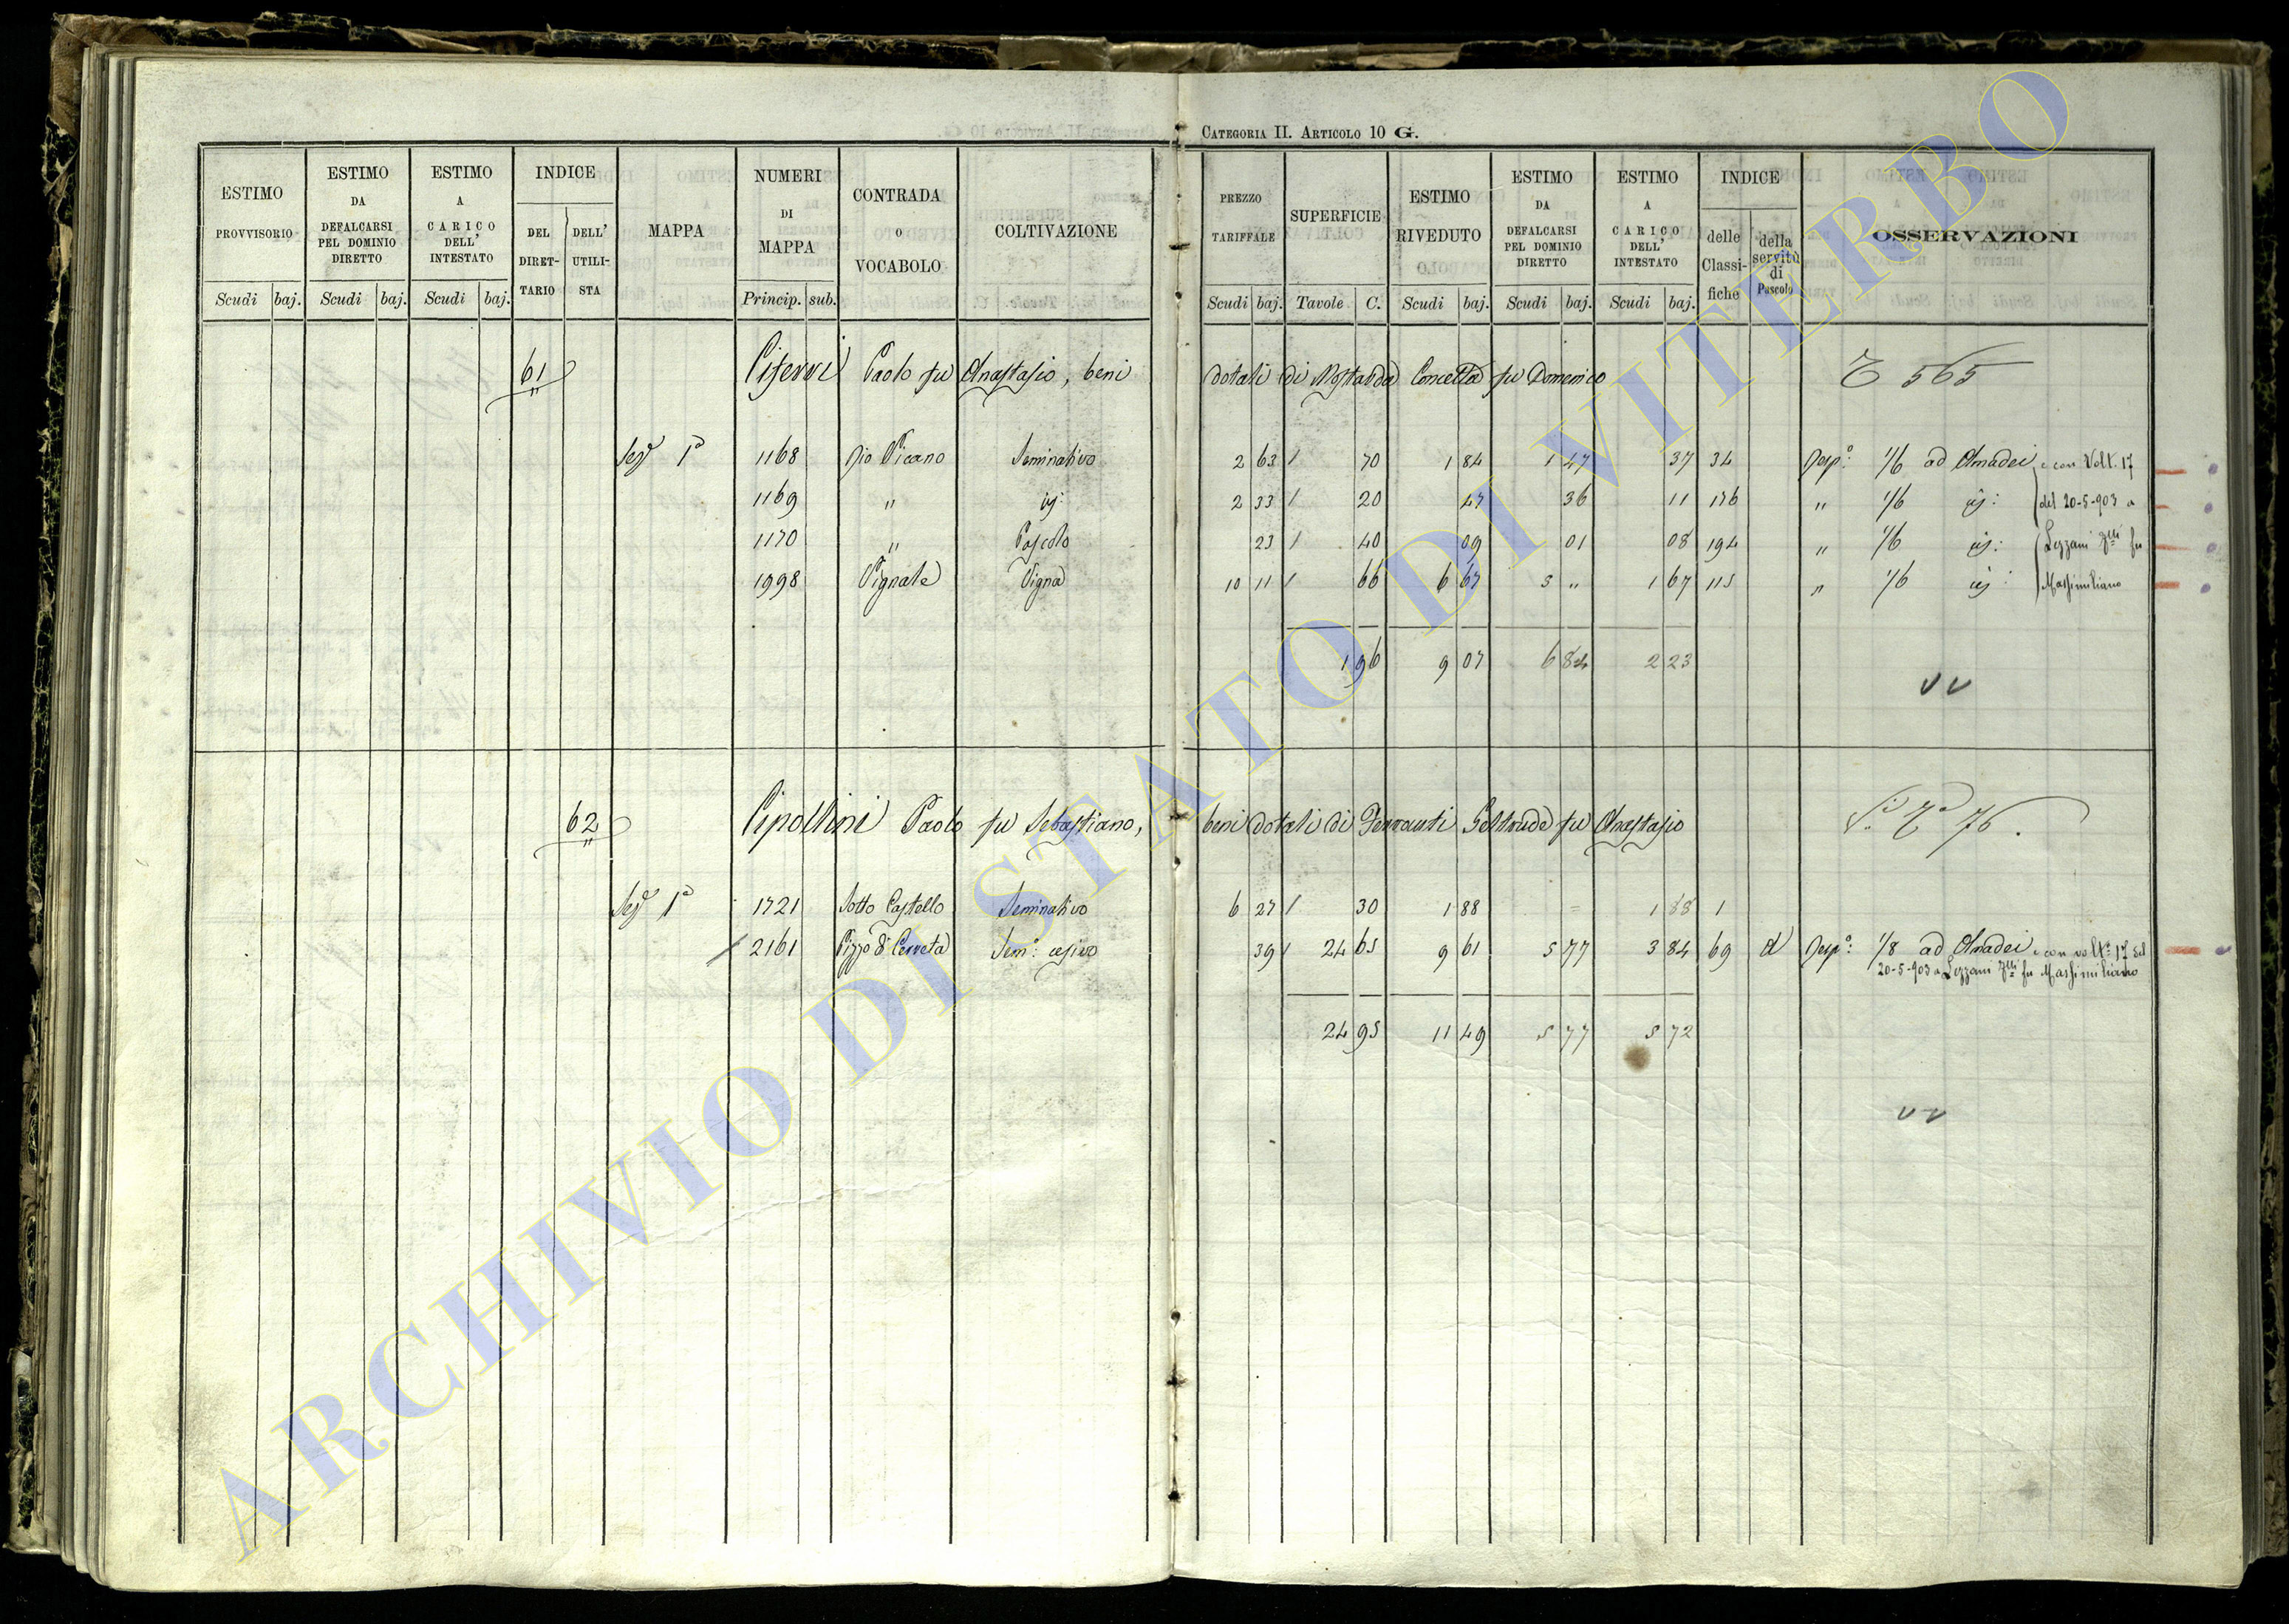 CATEGORIA II. ARTICOLO 10 G.
ESTIMO PROVVISORIO Scudi baj.
ESTIMO DA DEFALCARSI PEL DOMINIO DIRETTO Scudi baj.
ESTIMO A CARICO DELL' INTESTATO Scudi baj.
INDICE DEL DIRETTARIO DELL' UTILISTA
MAPPA
NUMERI DI MAPPA Princip. sub.
CONTRADA O VOCABOLO
COLTIVAZIONE
PREZZO TARIFFALE Scudi baj.
SUPERFICIE Tavole C.
ESTIMO RIVEDUTO Scudi baj.
ESTIMO DA DEFALCARSI PEL DOMINIO DIRETTO Scudi baj.
ESTIMO A CARICO DELL' INTESTATO Scudi baj.
INDICE delle Classifiche della servitù di Pascolo
OSSERVAZIONI
61 Ciferri Paolo fu Anastasio, beni dotali di Concetta fu Domenico 565
Sez.e 1a 1168 Rio Vicano Seminativo 2 63 / 70 1 84 1 47 37 34 Risp.o: 1/6 ad Amadei e con Volt. 17
1169 " id: 2 33 / 20 47 36 11 176 " 1/6 id: del 20-5-903 a
1170 " Pascolo 23 / 40 09 01 08 194 " 1/6 id: Lezzani fu
1998 Vignale Vigna 10 11 / 66 6 67 5 " 1 67 115 " 1/6 id: Massimiliano
1 96 9 07 6 84 2 23
62 Cipollini Paolo fu Sebastiano, beni dotali di Ferranti Geltrude fu Anastasio 76
Sez.e 1a 1721 Sotto Castello Seminativo 6 27 / 30 1 88 = 1 88 1
/ 2161 Pizzo di Cerreta Sem.o: cesivo 39 / 24 65 9 61 5 77 3 84 69 d Risp.o: 1/8 ad Amadei e con volt.a 17 del
20-5-903 a Lezzani fu Massimiliano
24 95 11 49 5 77 5 72
ARCHIVIO DI STATO DI VITERBO